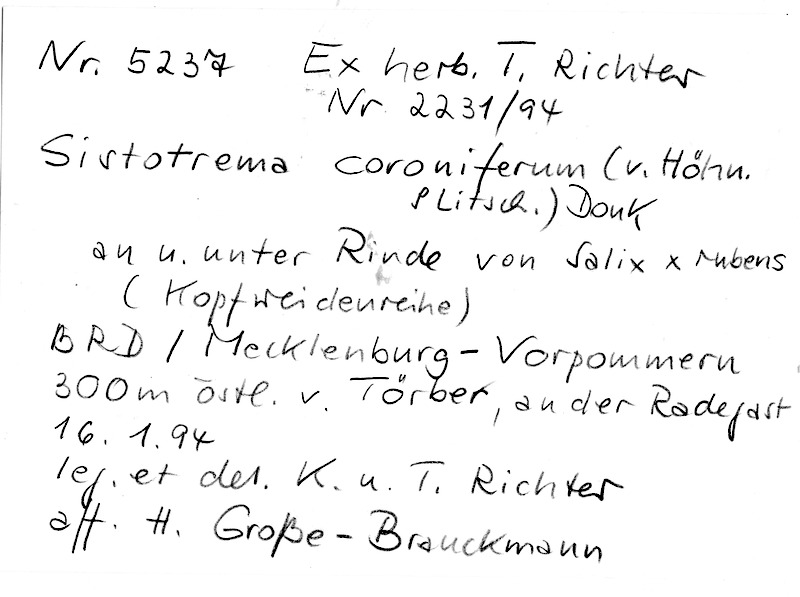 Nr. 5237 Ex herb. T. Richter
Nr 2231/94
Sistotrema coroniferum (v. Höhn.
& Litsch.) Donk
an u. unter Rinde von Salix x rubens
(Kopfweidenreihe)
BRD / Mecklenburg-Vorpommern
300m östl. v. Törber, an der Radegast
16. 1. 94
leg. et det. K. u. T. Richter
aff. H. Große-Brauckmann